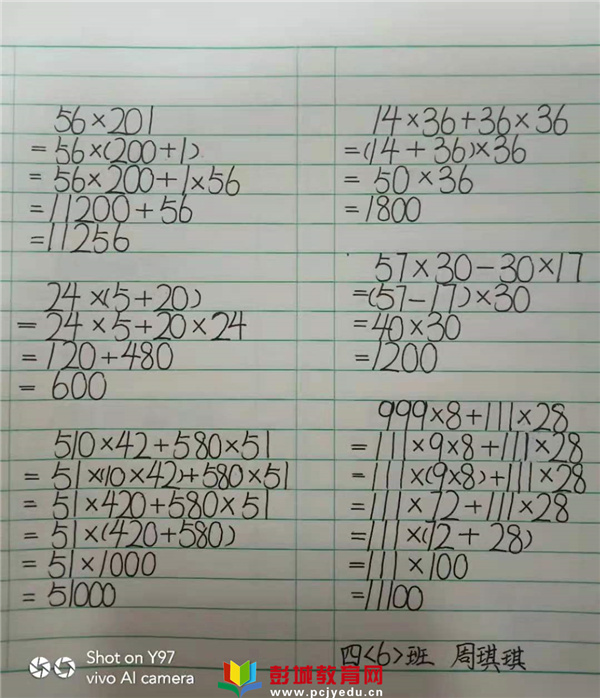 56×201
=56×(200+1)
=56×200+1×56
=11200+56
=11256
24×(5+20)
=24×5+20×24
=120+480
=600
510×42+580×51
=51×(10×42)+580×51
=51×420+580×51
=51×(420+580)
=51×1000
=51000
14×36+36×36
=(14+36)×36
=50×36
=1800
57×30-30×17
=(57-17)×30
=40×30
=1200
999×8+111×28
=111×9×8+111×28
=111×(9×8)+111×28
=111×72+111×28
=111×(72+28)
=111×100
=11100
四<6>班 周琪琪
Shot on Y97
vivo AI camera
彭城教育网
www.pcjyedu.cn